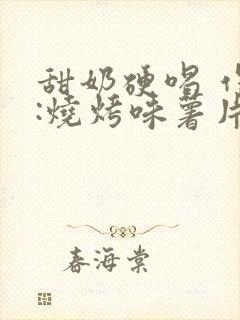 甜奶硬唱
:燒烤味薯片
春海棠